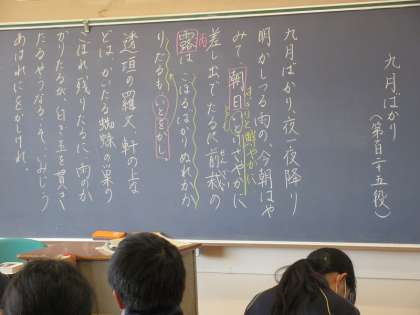 九月ばかり
（第百二十五段）
九月ばかり、夜一夜降り
明かしつる雨の、今朝はや
みて、朝日いとけざやかに
はっきりと鮮やかに
差し出でたるに、前栽の
露は、こぼるばかりぬれかか
雨
りたるも、いとをかし。
透垣の羅文、軒の上な
どは、かいたる蜘蛛の巣の
こぼれ残りたるに、雨のか
かりたるが、白き玉を貫き
たるやうなるこそ、いみじう
あはれにをかしけれ。